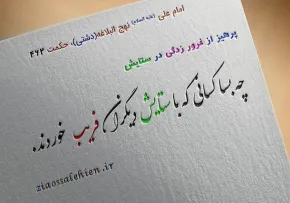 امام علی (علیه السلام) نهج البلاغه(دشتی)، حکمت ۴۶۲
پرهیز از غرور زدگی در ستایش
چه بسا کسانی که با ستایش دیگران فریب خوردند.
ziaossalehien.ir